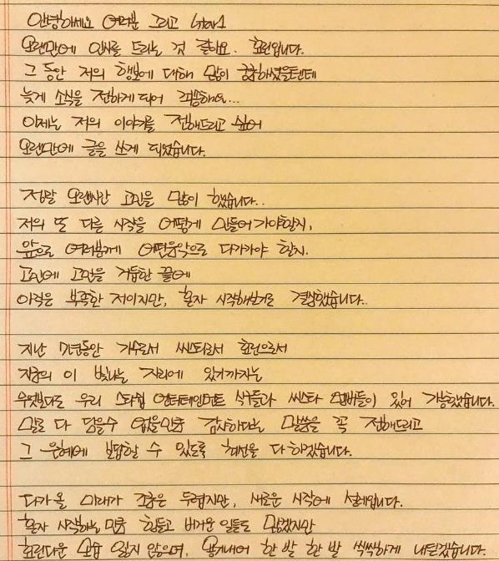 안녕하세요 여러분 그리고 star1
오랜만에 인사를 드리는 것 같아요. 효린입니다.
그 동안 저의 행보에 대해 많이 궁금하셨을텐데
늦게 소식을 전하게 되어 죄송해요...
이제는 저의 이야기를 전해드리고 싶어
오랜만에 글을 쓰게 되었습니다.
정말 오랜시간 고민을 많이 했습니다..
저의 또 다른 시작을 어떻게 만들어가야할지,
앞으로 여러분께 어떤음악으로 다가가야 할지.
고민에 고민을 거듭한 끝에
아직은 부족한 저이지만, 혼자 시작해보기로 결정했습니다..
지난 7년동안 가수로서 씨스타로서 효린으로서
지금의 이 빛나는 자리에 있기까지는
무엇보다도 우리 스타쉽 엔터테인먼트 식구들과 씨스타 멤버들이 있어 가능했습니다.
말로 다 담을수 없을만큼 감사하다는 말씀을 꼭 전해드리고
그 은혜에 보답할 수 있도록 최선을 다 하겠습니다.
다가올 미래가 조금은 두렵지만, 새로운 시작에 설레입니다.
혼자 시작하는 만큼 힘들고 버거운 일들도 많겠지만
효린다운 모습 잃지 않으며, 용기내어 한 발 한 발 씩씩하게 내딛겠습니다.